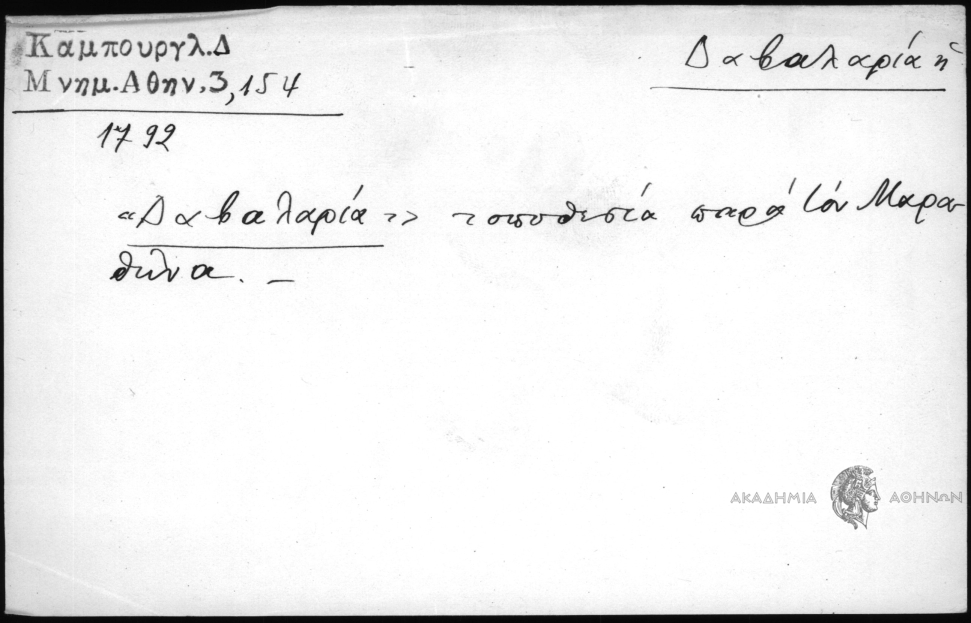 Καμπουργλ.Δ
Μνημ.Αθην.3,154
Δαβαλαρία ἡ
1792
«Δαβαλαρία» τοποθεσία παρά τόν Μαρα-
θῶνα. –
ΑΚΑΔΗΜΙΑ ΑΘΗΝΩΝ